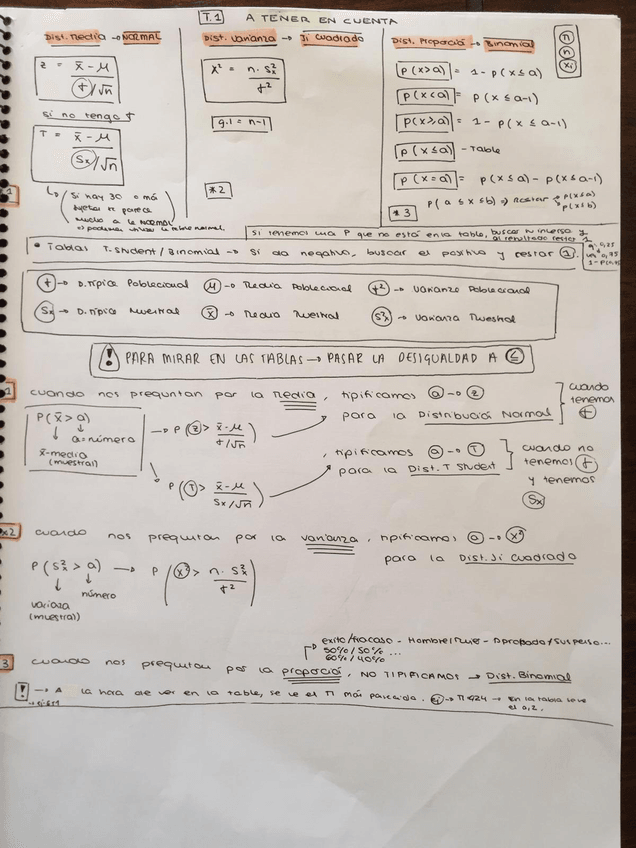 T.1 A TENER EN CUENTA
Dist. Media → NORMAL
Z = x̄ - μ / σ/√n
Si no tengo σ
T = x̄ - μ / Sx/√n
Si hay 30 o más
sujetos te parece
mucho a la NORMAL
⇒ podemos utilizar la tabla normal.
Dist. Varianza → Ji Cuadrado
X² = n · S²x / σ²
g.l = n-1
*2
Dist. Proporció → Binomial
p(x>a) = 1 - p(x≤a)
p(x<a) = p(x≤a-1)
p(x≥a) = 1 - p(x≤a-1)
p(x≤a) - Tabla
p(x=a) = p(x≤a) - p(x≤a-1)
p(a≤x≤b) ⇒ Restar p(x≤a) p(x≤b)
*3
n
xi
1
Si tenemos una P que no está en la tabla, buscar tu inverso y
al resultado restar 1.
• Tablas T.Student/Binomial → Si da negativo, buscar el positivo y restar 1.
σ → D.Típica Poblacional μ → Media Poblacional σ² → Varianza Poblacional
Sx → D.típica Muestral x̄ → Media Muestral S²x → Varianza Muestral
! PARA MIRAR EN LAS TABLAS → PASAR LA DESIGUALDAD A ≤
1 cuando nos preguntan por la Media, tipificamos a → z
para la Distribució Normal
cuando
tenemos
σ
P(x̄ > a)
a=número
x̄-media
(muestral)
→ P(z > x̄-μ / σ/√n)
P(T > x̄-μ / Sx/√n)
, tipificamos a → T
para la Dist. T Student
cuando no
tenemos σ
y tenemos
Sx
*2 cuando nos preguntan por la varianza, tipificamos a → X²
para la Dist. Ji cuadrado
P(S²x > a) → P(X² > n · S²x / σ²)
número
varianza
(muestral)
exito/fracaso - Hombre/Mujer - Aprobado/Suspenso...
50%/50% ...
60%/40%
3 cuando nos preguntan por la proporció, NO TIPIFICAMOS → Dist. Binomial
! → A la hora de ver en la tabla, se ve el π más parecida. → En la tabla se ve
el 0,2.